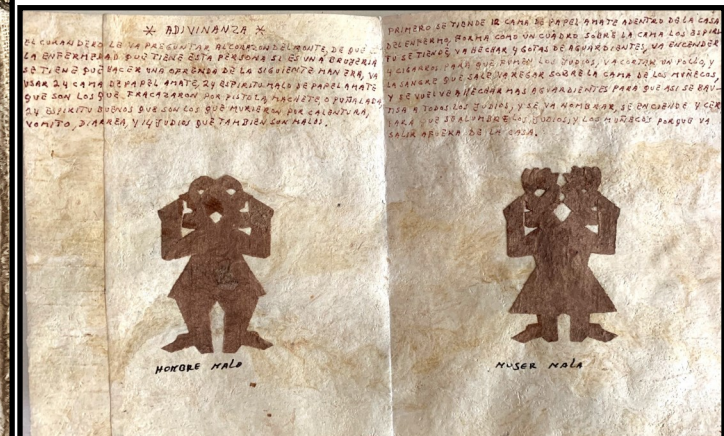 * ADIVINANZA *
EL CURANDERO LE VA PREGUNTAR AL CORAZON DEL MONTE, DE QUE
LA ENFERMEDAD QUE TIENE ESTA PERSONA SI ES UNA BRUJERIA
SE TIENE QUE HACER UNA OFRENDA DE LA SIGUIENTE MANERA, VA
USAR 24 CAMA DE PAPEL AMATE, 24 ESPIRITU MALO DE PAPEL AMATE
QUE SON LOS QUE FRACAZARON POR PISTOLA, MACHETE, O PUÑALADA,
24 ESPIRITU BUENOS QUE SON LOS QUE MURIERON POR CALENTURA,
VOMITO, DIARREA, Y 14 JUDIOS QUE TAMBIEN SON MALOS.
HOMBRE MALO
PRIMERO SE TIENDE 12 CAMA DE PAPEL AMATE ADENTRO DE LA CASA
DEL ENFERMO, FORMA COMO UN CUADRO SOBRE LA CAMA LOS ESPIRI
TU SE TIENE, VA HECHAR 4 GOTAS DE AGUARDIENTES, VA ENCENDER
4 CIGARROS PARA QUE FUMEN LOS JUDIOS, VA CORTAR UN POLLO, Y
LA SANGRE QUE SALE VA REGAR SOBRE LA CAMA DE LOS MUÑECOS,
Y SE VUELVE A HECHAR MAS AGUARDIENTES PARA QUE ASI SE BAU-
TISA A TODOS LOS JUDIOS, Y SE VA NOMBRAR, SE ENCIENDE 4 CER
PARA QUE SE ALUMBRE LOS JUDIOS, Y LOS MUÑECOS PORQUE VA
SALIR AFUERA DE LA CASA.
MUJER MALA